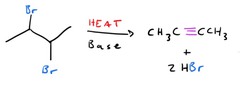 Br
Br
HEAT
Base
CH₃C≡CCH₃
+
2 HBr